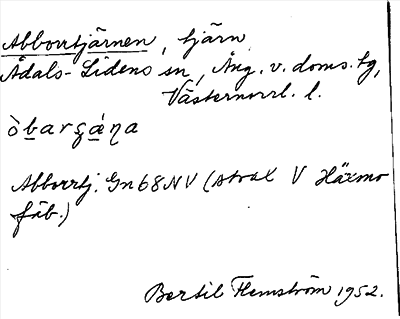 Abborrtjärnen, tjärn
Ådals-Lidens sn, Ång. v. doms. tg,
Västernorrl. l.
òbargáŋa
Abborrtj. Gn 68 NV (strax V Häxmo
fäb.)
Bertil Flemström 1952.